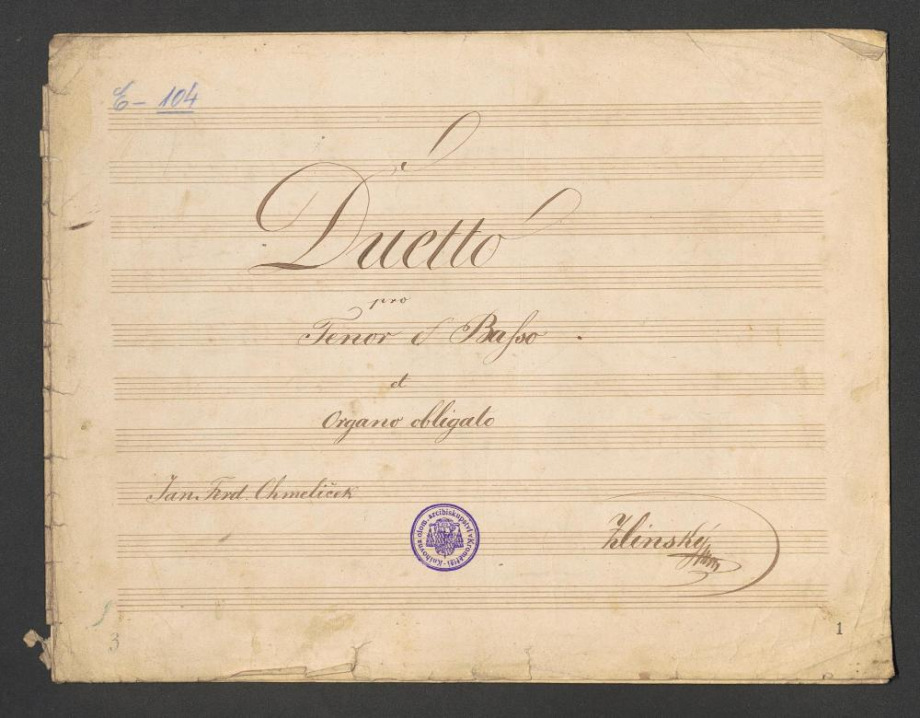 E - 104
Duetto
pro
Tenor et Baſso.
et
Organo obligato
Jan. Ferd. Chmelíček
Zlinský
Knihovna olom. arcibiskupství v Kroměříži
3
1